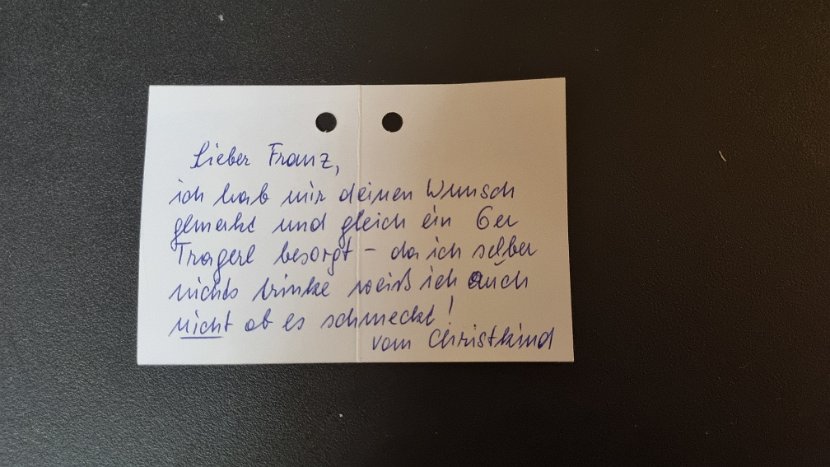 Lieber Franz,
ich hab mir deinen Wunsch
gemerkt und gleich ein 6er
Tragerl besorgt – da ich selber
nichts trinke weiß ich auch
nicht ob es schmeckt!
vom Christkind